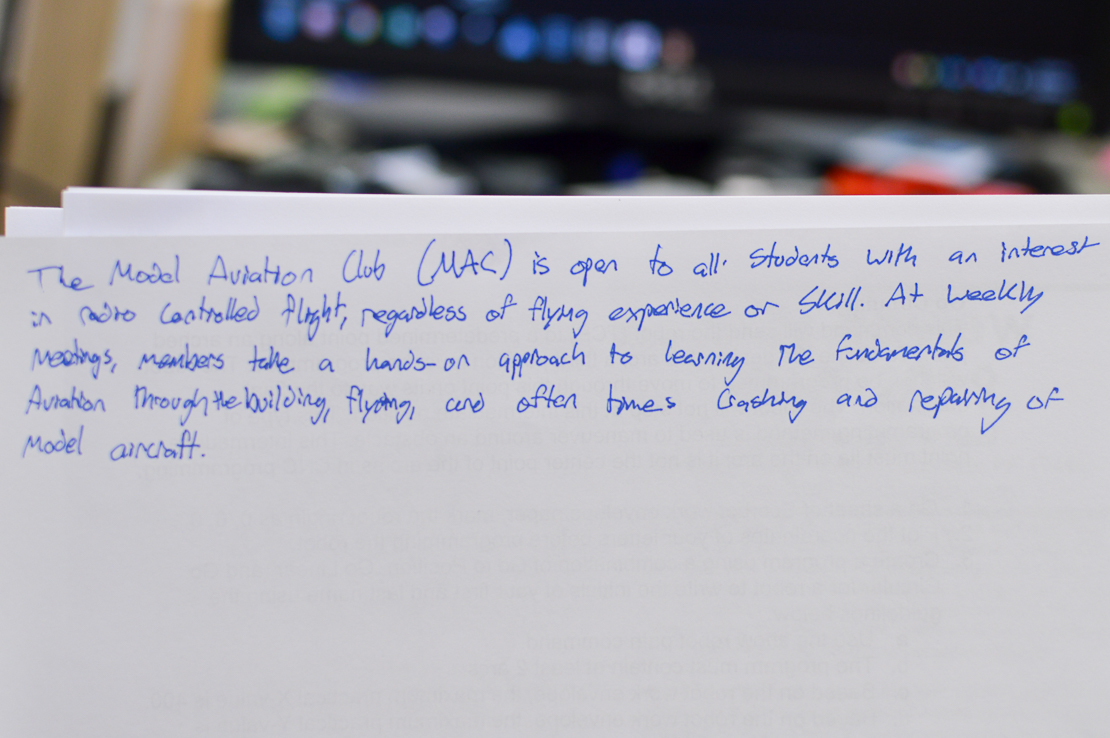 The Model Aviation Club (MAC) is open to all students with an interest
in radio controlled flight, regardless of flying experience or skill. At weekly
meetings, members take a hands-on approach to learning the fundamentals of
Aviation through the building, flying, and often times crashing and repairing of
model aircraft.